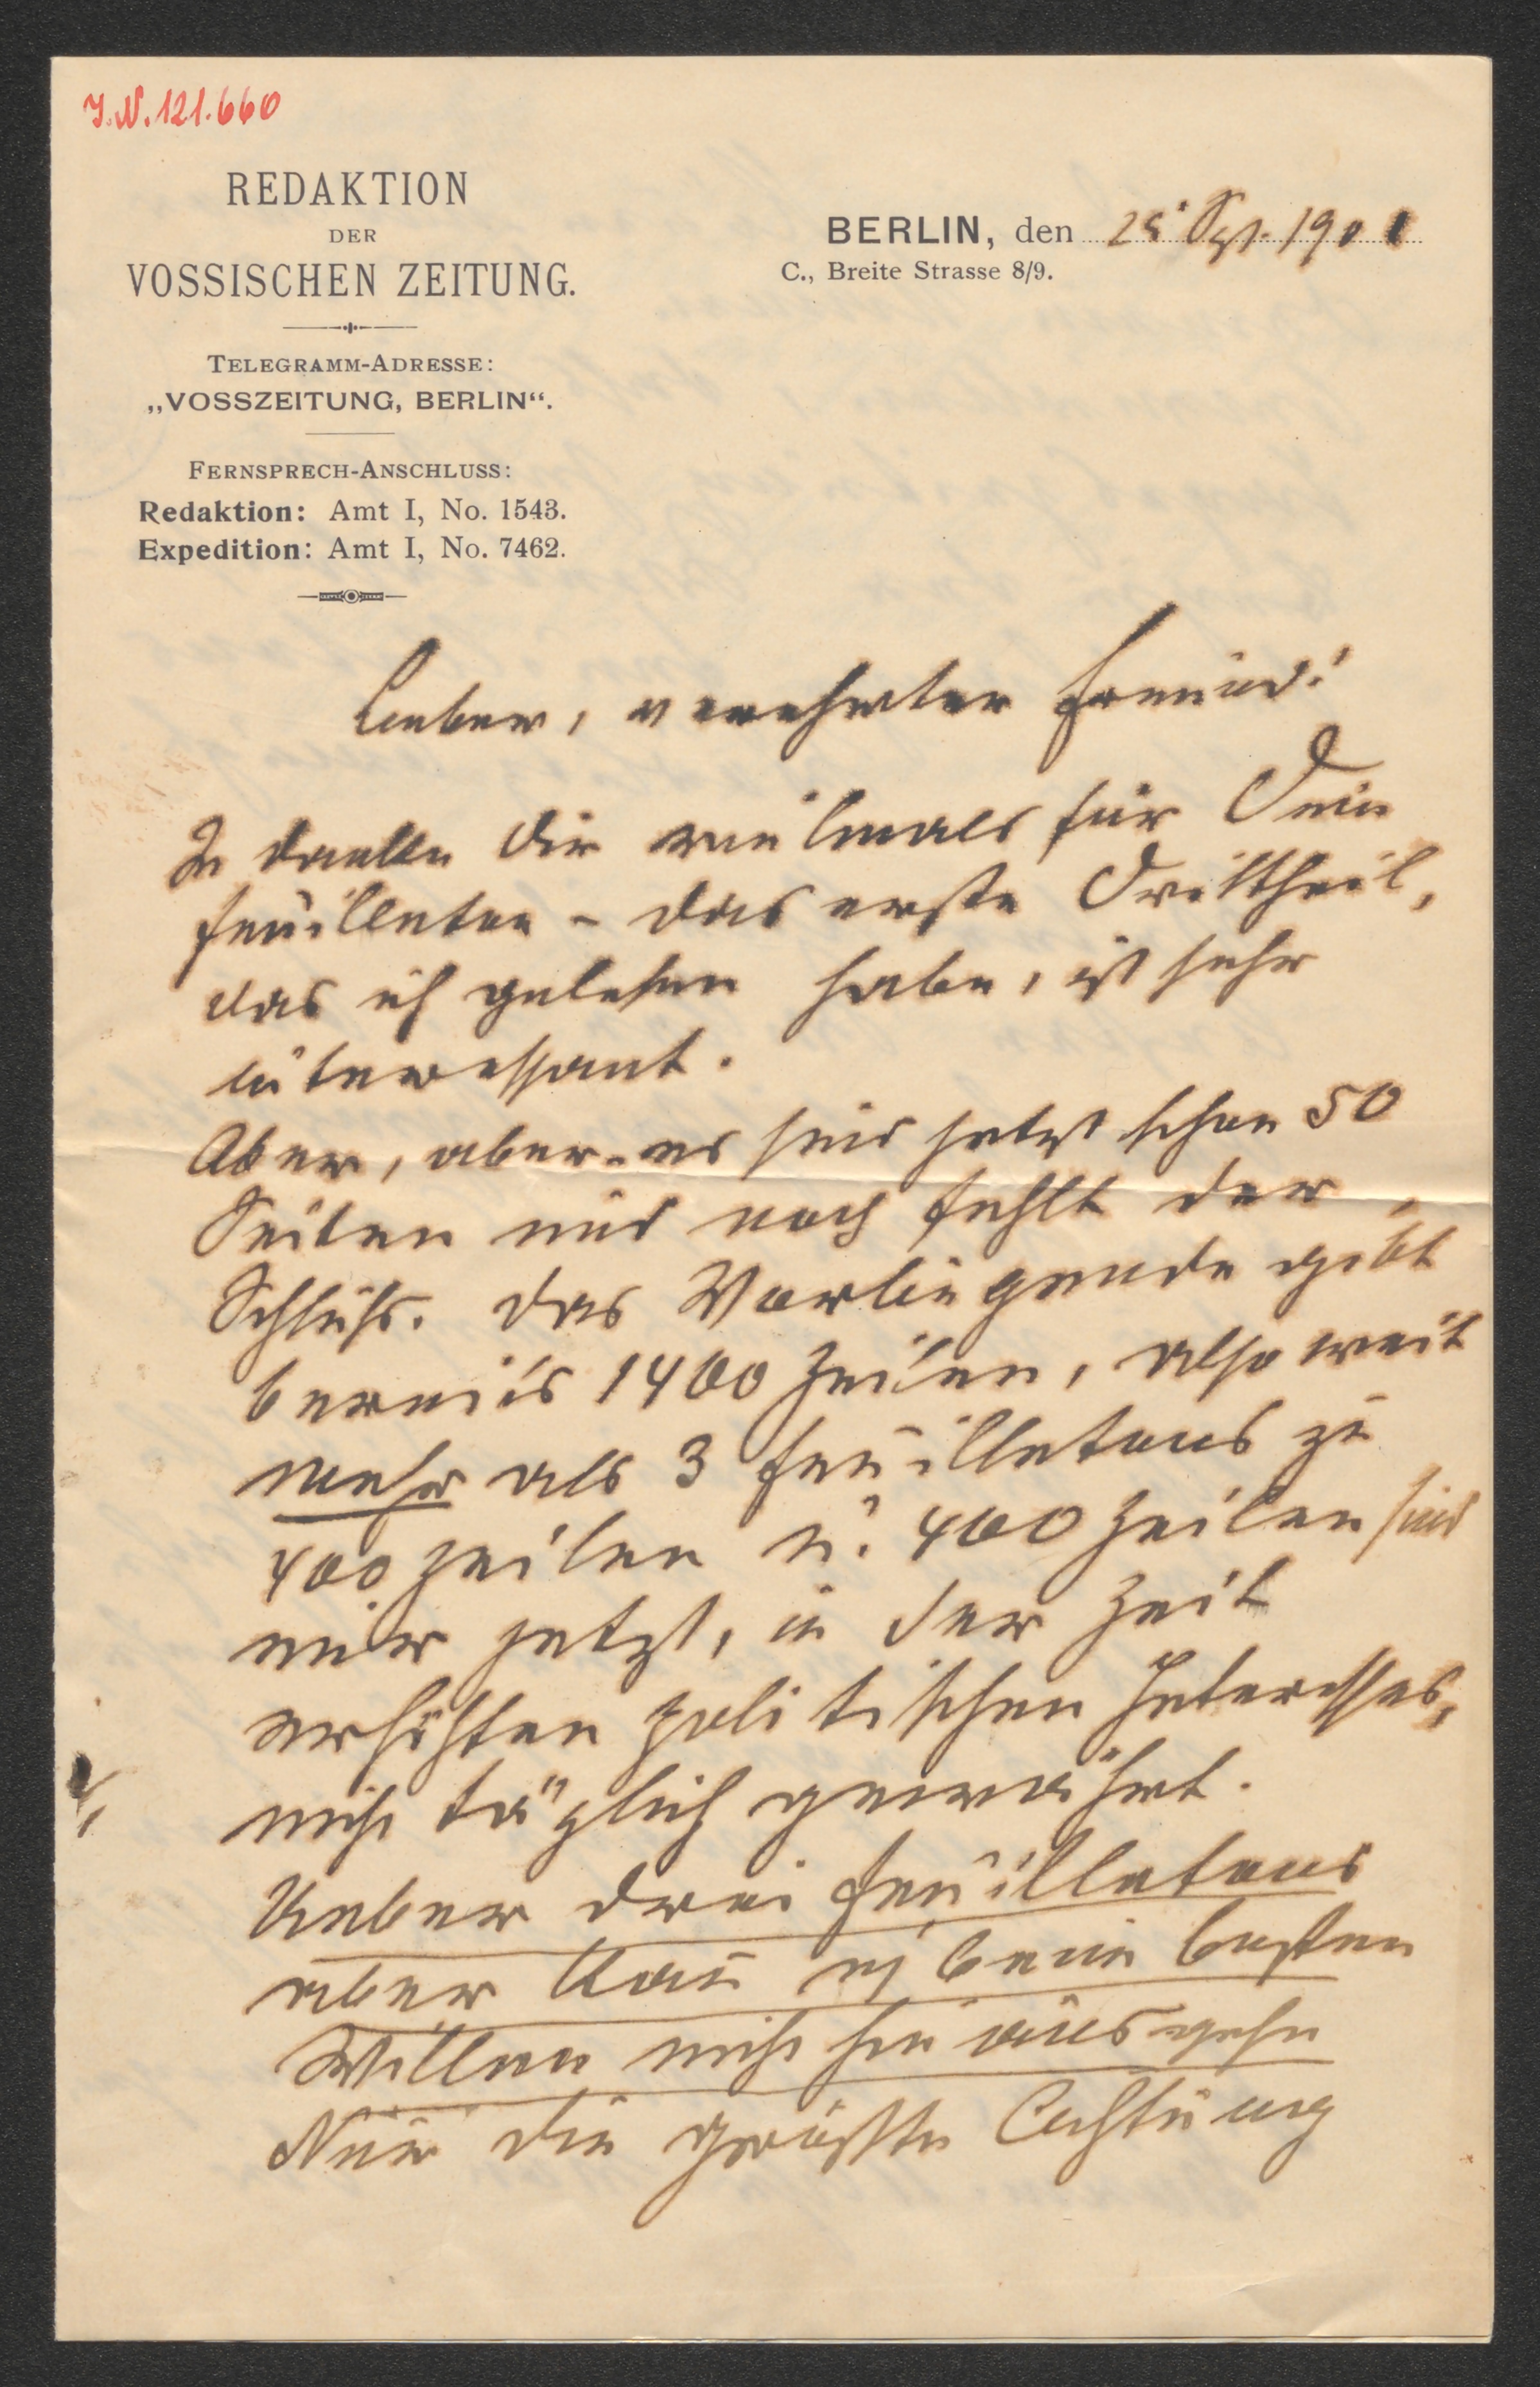 J.N. 121.660
REDAKTION
DER
VOSSISCHEN ZEITUNG.
TELEGRAMM-ADRESSE:
„VOSSZEITUNG, BERLIN“.
FERNSPRECH-ANSCHLUSS:
Redaktion: Amt I, No. 1543.
Expedition: Amt I, No. 7462.
BERLIN, den 25. Sept. 1901
C., Breite Strasse 8/9.
Lieber, verehrter Freund!
danke Dir vielmals für Dein
Feuilleton – das erste Drittheil,
das ich gelesen habe, ist sehr
interessant.
Aber, aber – es sind jetzt schon 50
Seiten und noch fehlt der
Schluß. Das Vorliegende gibt
bereits 1400 Zeilen, also weit
mehr als 3 Feuilletons zu
400 Zeilen u. 400 Zeilen sind
mir jetzt, in der Zeit
erhöhten politischen Interesses,
nicht täglich gewährt.
Ueber drei Feuilletons
aber kann ich beim besten
Willen nicht hinausgehn
Nur die größte Achtung